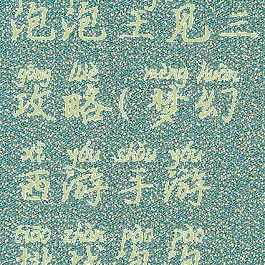 泡泡王见三
gōng lüè mèng huàn
攻略(梦幻
xī yóu shǒu yóu
西游手游
tiǎo zhàn pào pào
挑战泡泡